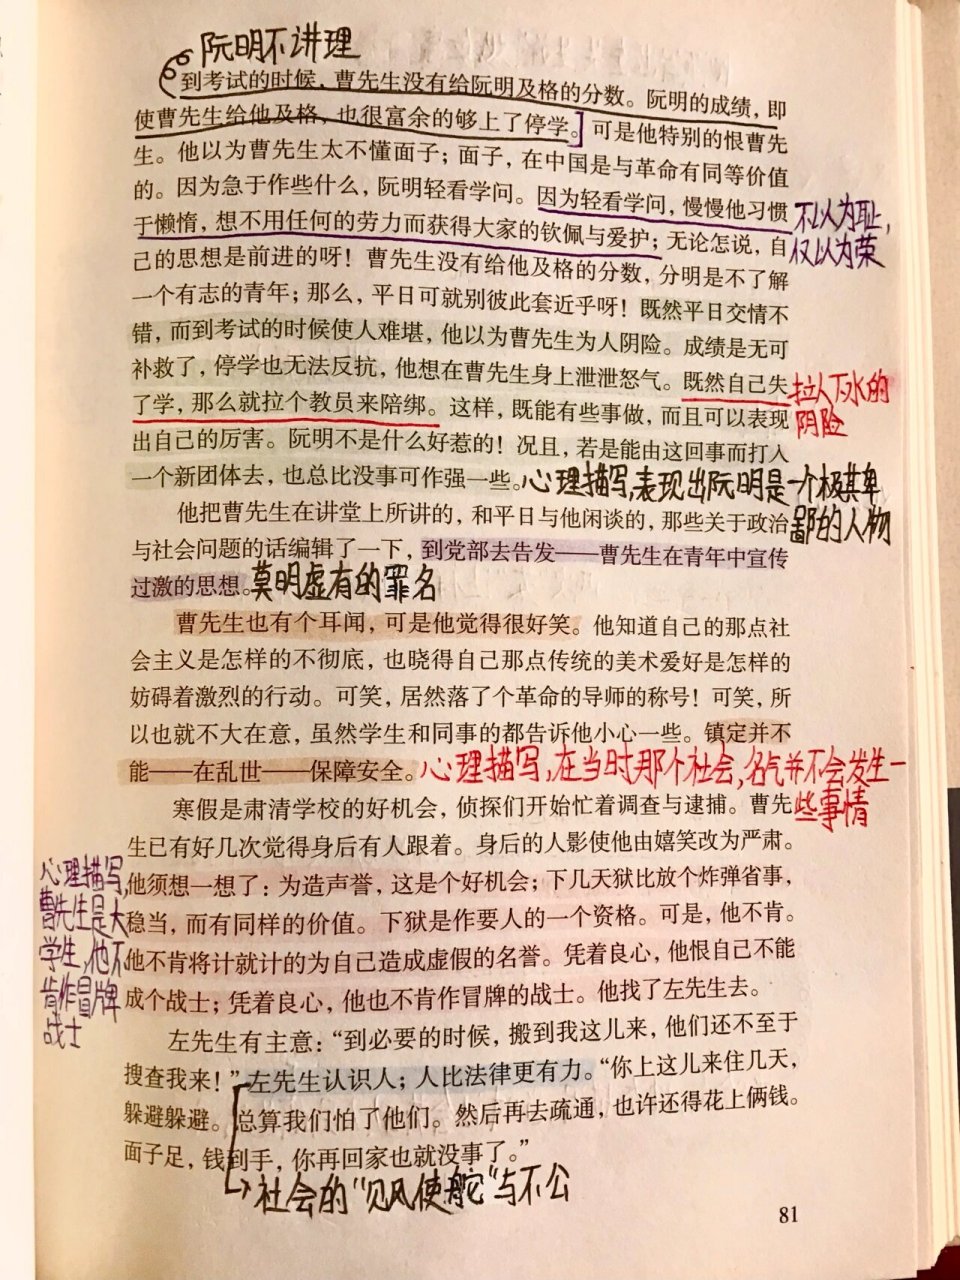 阮明不讲理
到考试的时候，曹先生没有给阮明及格的分数。阮明的成绩，即
使曹先生给他及格，也很富余的够上了停学。可是他特别的恨曹先
生。他以为曹先生太不懂面子；面子，在中国是与革命有同等价值
的。因为急于作些什么，阮明轻看学问。因为轻看学问，慢慢他习惯
于懒惰，想不用任何的劳力而获得大家的钦佩与爱护；无论怎说，自
不以为耻，
仅以为荣
己的思想是前进的呀！曹先生没有给他及格的分数，分明是不了解
一个有志的青年；那么，平日可就别彼此套近乎呀！既然平日交情不
错，而到考试的时候使人难堪，他以为曹先生为人阴险。成绩是无可
补救了，停学也无法反抗，他想在曹先生身上泄泄怒气。既然自己失
了学，那么就拉个教员来陪绑。这样，既能有些事做，而且可以表现
拉人下水的
阴险
出自己的厉害。阮明不是什么好惹的！况且，若是能由这回事而打入
一个新团体去，也总比没事可作强一些。
心理描写，表现出阮明是一个极其卑
鄙的人物
他把曹先生在讲堂上所讲的，和平日与他闲谈的，那些关于政治
与社会问题的话编辑了一下，到党部去告发——曹先生在青年中宣传
过激的思想。
莫明虚有的罪名
曹先生也有个耳闻，可是他觉得很好笑。他知道自己的那点社
会主义是怎样的不彻底，也晓得自己那点传统的美术爱好是怎样的
妨碍着激烈的行动。可笑，居然落了个革命的导师的称号！可笑，所
以也就不大在意，虽然学生和同事的都告诉他小心一些。镇定并不
能——在乱世——保障安全。
心理描写，在当时那个社会，名气并不会发生一
些事情
寒假是肃清学校的好机会，侦探们开始忙着调查与逮捕。曹先
生已有好几次觉得身后有人跟着。身后的人影使他由嬉笑改为严肃。
他须想一想了：为造声誉，这是个好机会；下几天狱比放个炸弹省事，
稳当，而有同样的价值。下狱是作要人的一个资格。可是，他不肯。
他不肯将计就计的为自己造成虚假的名誉。凭着良心，他恨自己不能
成个战士；凭着良心，他也不肯作冒牌的战士。他找了左先生去。
心理描写，
曹先生是大
学生，他不
肯作冒牌
战士
左先生有主意：“到必要的时候，搬到我这儿来，他们还不至于
搜查我来！”左先生认识人；人比法律更有力。“你上这儿来住几天，
躲避躲避。总算我们怕了他们。然后再去疏通，也许还得花上俩钱。
面子足，钱到手，你再回家也就没事了。”
社会的“见风使舵”与不公
81